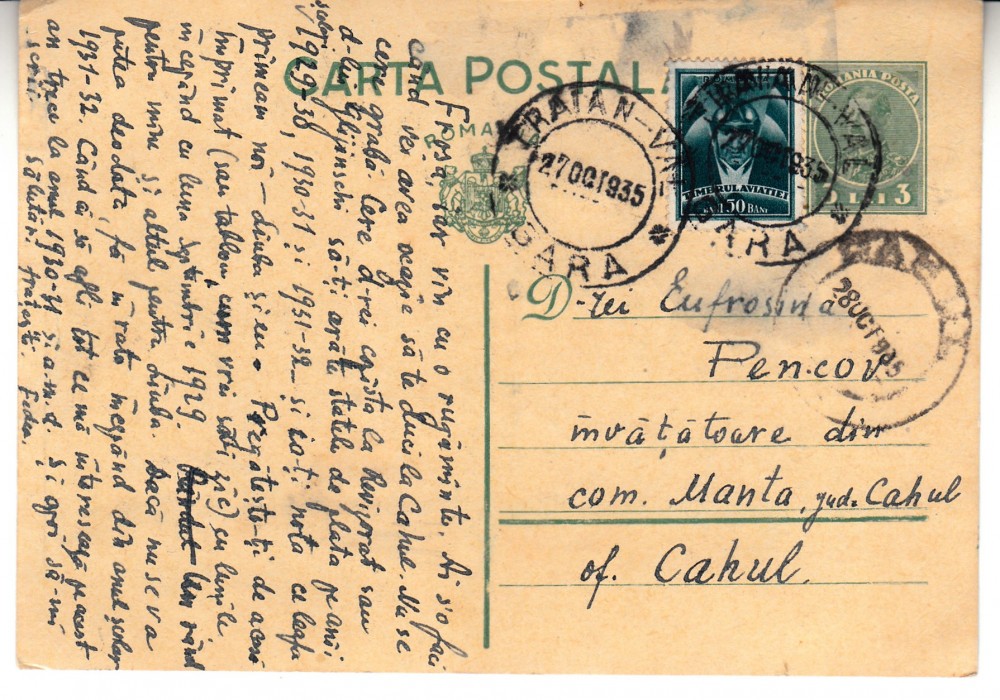 CARTA POSTALA
ROMANIA
TRAIAN-VAL
27 OCT 935
GARA
TIMBRUL AVIATIEI
BANI 50 BANI
TRAIAN-VAL
27 OCT 935
GARA
ROMANIA POSTA
3 LEI 3
28 OCT 935
D-rei Eufrosina
Pencov
învățătoare din
com. Manta, jud. Cahul
of. Cahul.
Frosă, iar vin cu o rugăminte. Ai s'o faci
când vei avea ocazie să te duci la Cahul. Nu se
cere grabă. Cere d-rei cojista la Revizorat sau
d-lui Glijinschi să-ți arăte statele de plata pe anii
școlari 1929-30, 1930-31 și 1931-32 și ia-ți nota ce leafa
primeam noi – Liuba și eu. Pregătește-ți de acasă
imprimat (sau tablou, cum vrei să-i zici) cu lunile
începând cu luna Septembrie 1929. Un rând
pentru mine și altul pentru Liuba. Dacă nu se va
putea deodată, fă în rate începând din anul școlar
1931-32. Când ai să afli tot ce mă interesează pe acest
an treci la anul 1930-31 ș.a.m.d. și apoi să-mi
scrii. Salutări frățești. Fedea.